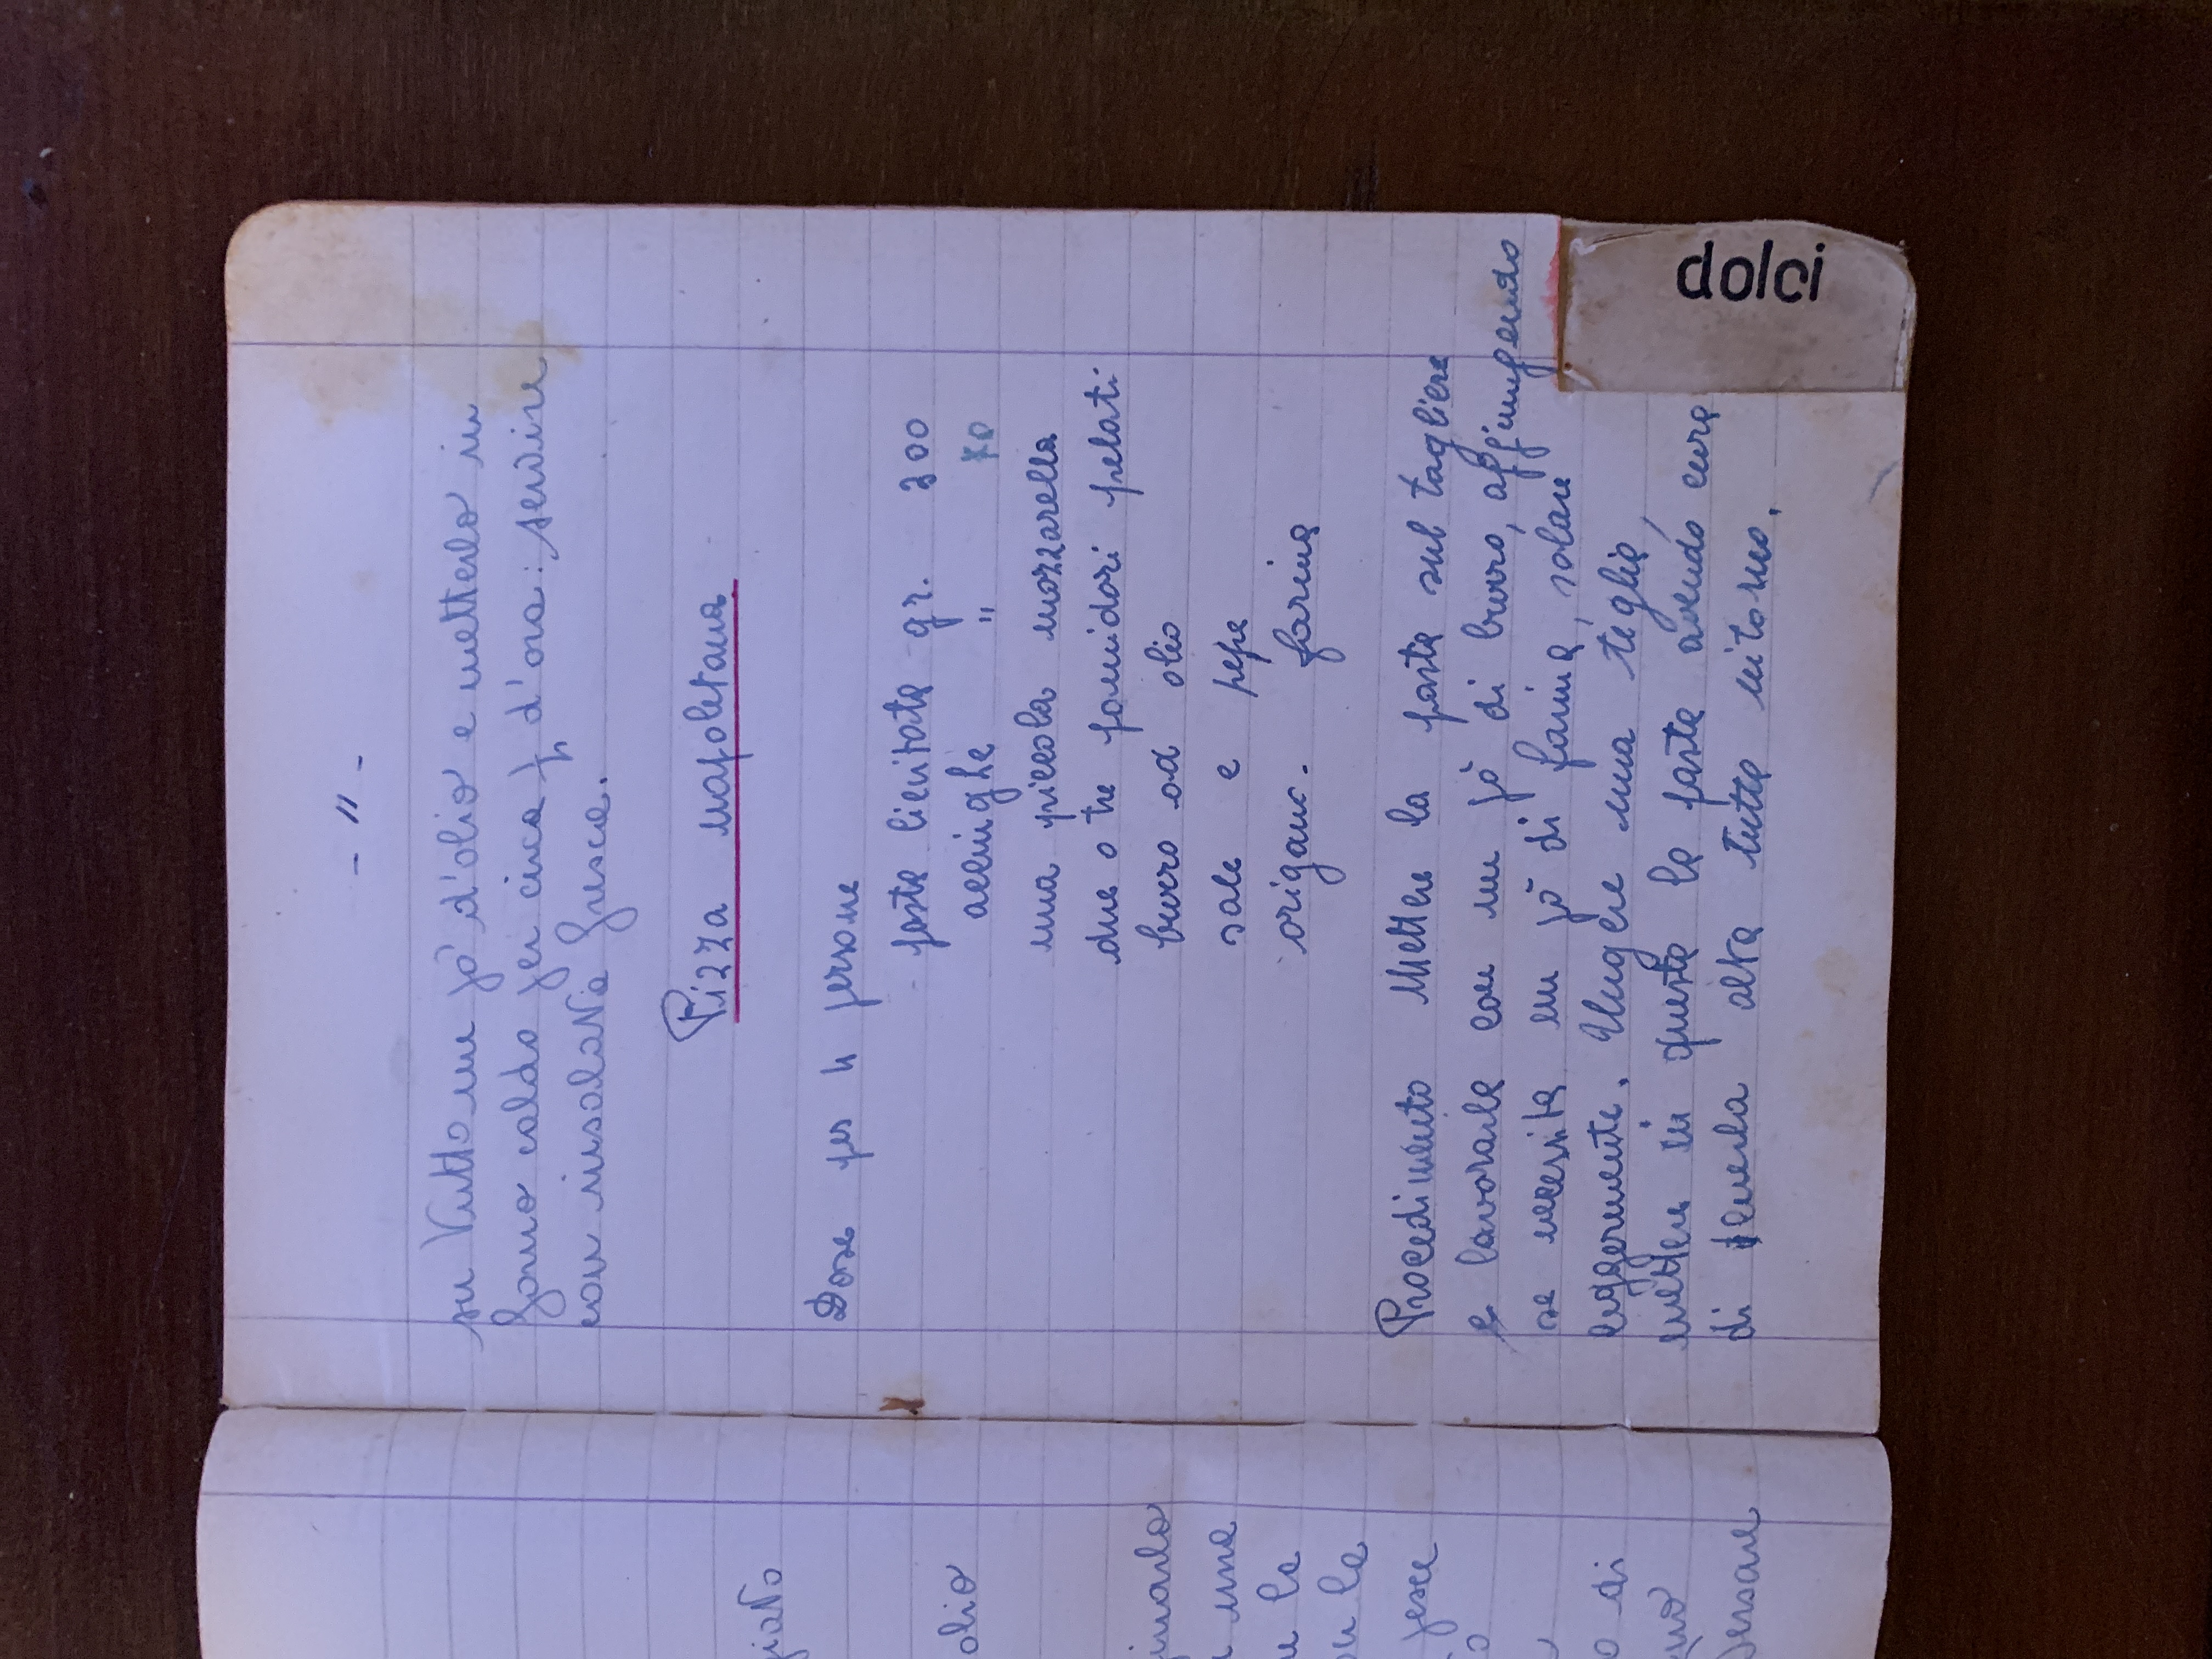 - 11 -
su tutto un pò d'olio e metterlo in
forno caldo per circa 1/4 d'ora: servire
con insalata fresca.
Pizza napoletana
Dose per 4 persone
pasta lievitata gr. 300
acciughe " 70
una piccola mozzarella
due o tre pomidori pelati
burro od olio
sale e pepe
origano. farina
Procedimento Mettere la pasta sul tagliere
e lavorarla con un pò di burro, aggiungendo
se necessita un pò di farina, salare
leggermente. Ungere una teglia,
mettere in questa la pasta avendo cura
di tenerla alta tutta intorno.
dolci
giato
olio
una
la
la
pesce
di
Versare